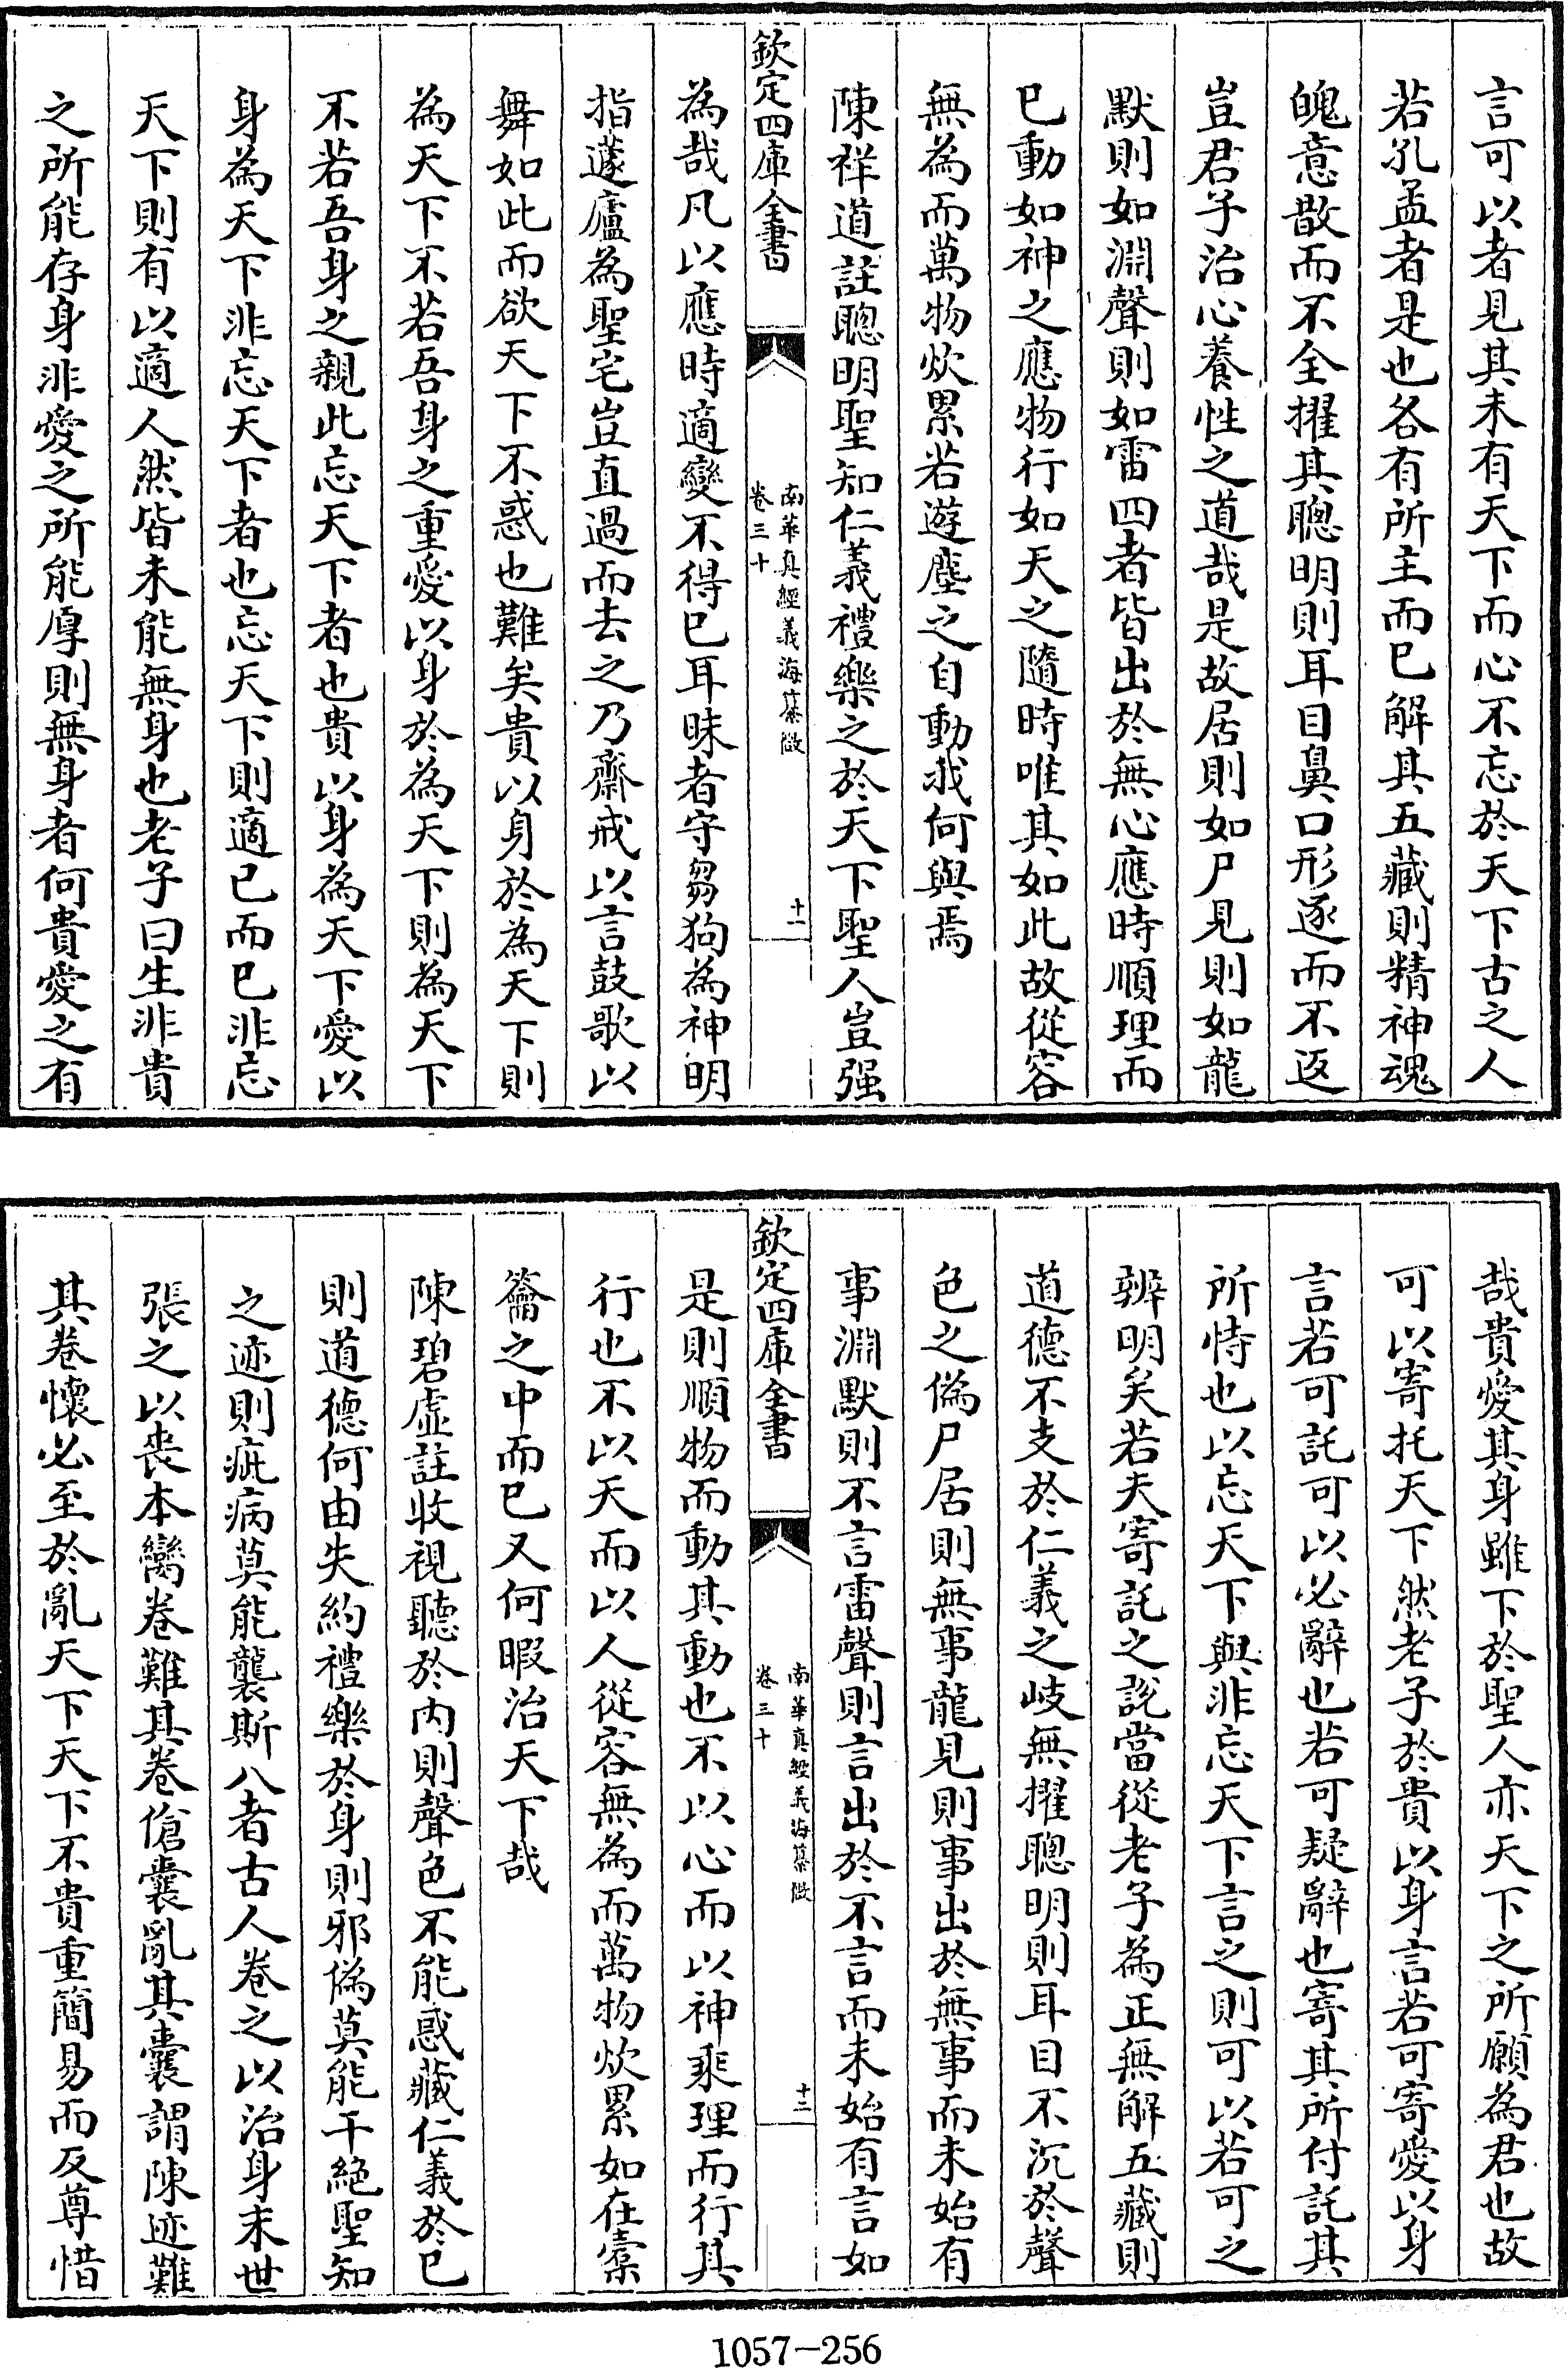 言可以者見其未有天下而心不忘於天下古之人
若孔孟者是也各有所主而已解其五藏則精神魂
魄意散而不全擢其聰明則耳目鼻口形逐而不返
豈君子治心養性之道哉是故居則如尸見則如龍
默則如淵聲則如雷四者皆出於無心應時順理而
已動如神之應物行如天之隨時唯其如此故從容
無為而萬物炊累若遊塵之自動我何與焉
陳祥道註聰明聖知仁義禮樂之於天下聖人豈强
欽定四庫全書
南華真經義海纂微
卷三十
十一
為哉凡以應時適變不得已耳昧者守芻狗為神明
指蘧廬為聖宅豈直過而去之乃齋戒以言鼓歌以
舞如此而欲天下不惑也難矣貴以身於為天下則
為天下不若吾身之重愛以身於為天下則為天下
不若吾身之親此忘天下者也貴以身為天下愛以
身為天下非忘天下者也忘天下則適已而已非忘
天下則有以適人然皆未能無身也老子曰生非貴
之所能存身非愛之所能厚則無身者何貴愛之有
哉貴愛其身雖下於聖人亦天下之所願為君也故
可以寄托天下然老子於貴以身言若可寄愛以身
言若可託可以必辭也若可疑辭也寄其所付託其
所恃也以忘天下與非忘天下言之則可以若可之
辨明矣若夫寄託之說當從老子為正無解五藏則
道德不支於仁義之岐無擢聰明則耳目不沉於聲
色之偽尸居則無事龍見則事出於無事而未始有
事淵默則不言雷聲則言出於不言而未始有言如
欽定四庫全書
南華真經義海纂微
卷三十
十二
是則順物而動其動也不以心而以神乘理而行其
行也不以天而以人從容無為而萬物炊累如在橐
籥之中而已又何暇治天下哉
陳碧虛註收視聽於内則聲色不能惑藏仁義於已
則道德何由失約禮樂於身則邪偽莫能干絕聖知
之迹則疵病莫能襲斯八者古人卷之以治身末世
張之以喪本臠卷難其卷傖囊亂其囊謂陳迹難
其卷懷必至於亂天下天下不貴重簡易而反尊惜
1057-256